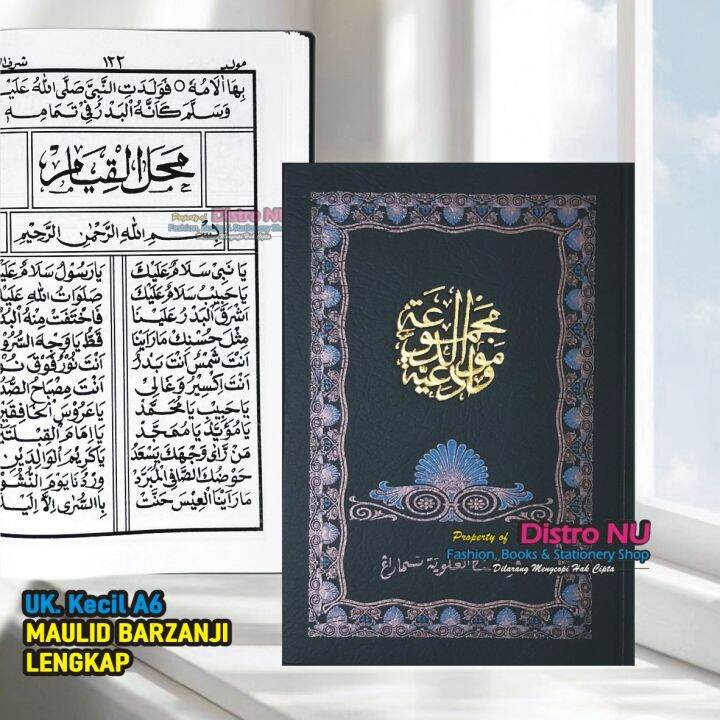 مولد ١٢٢ شرف
بِهَا الْاُمَّةُ ○ فَوَلَدَتِ النَّبِيَّ صَلَّى اللهُ
وَسَلَّمَ كَاَنَّهُ الْبَدْرُ فِيْ تَمَامِهِ
مَحَلُّ الْقِيَامِ
بِسْمِ اللهِ الرَّحْمٰنِ الرَّحِيْمِ
يَا نَبِيْ سَلَامٌ عَلَيْكَ يَا رَسُوْلْ سَلَامٌ
يَا حَبِيْبْ سَلَامٌ عَلَيْكَ صَلَوَاتُ اللهِ
اَشْرَقَ الْبَدْرُ عَلَيْنَا فَاخْتَفَتْ مِنْهُ
مِثْلَ حُسْنِكْ مَا رَاَيْنَا قَطُّ يَا وَجْهَ
اَنْتَ شَمْسٌ اَنْتَ بَدْرٌ اَنْتَ نُوْرٌ فَوْقَ
اَنْتَ اِكْسِيْرٌ وَغَالِيْ اَنْتَ مِصْبَاحُ
يَا حَبِيْبْ يَا مُحَمَّدْ يَا عَرُوْسَ
يَا مُؤَيَّدْ يَا مُمَجَّدْ يَا اِمَامَ
مَنْ رَاٰى وَجْهَكَ يَسْعَدْ يَا كَرِيْمَ الْوَالِدَيْنِ
حَوْضُكَ الصَّافِى الْمُبَرَّدْ وِرْدُنَا يَوْمَ
مَا رَاَيْنَا الْعِيْسَ حَنَّتْ بِالسُّرٰى اِلَّا
Property of Distro NU
Fashion, Books & Stationery Shop
مجموعة
مولود
وأدعية
Property of Distro NU
Fashion, Books & Stationery Shop
Dilarang Mengcopi Hak Cipta
العلوية سماراغ
UK. Kecil A6
MAULID BARZANJI
LENGKAP